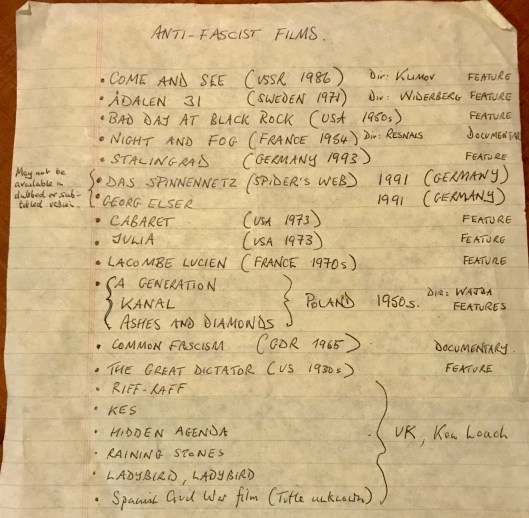 ANTI-FASCIST FILMS.
• COME AND SEE (USSR 1986) Dir: KLIMOV FEATURE
• ÅDALEN 31 (SWEDEN 1971) Dir: WIDERBERG FEATURE
• BAD DAY AT BLACK ROCK (USA 1950s) FEATURE
• NIGHT AND FOG (FRANCE 1954) Dir: RESNAIS DOCUMENTAR
• STALINGRAD (GERMANY 1993) FEATURE
May not be
available in
dubbed or sub-
titled version.
• DAS SPINNENNETZ (SPIDER'S WEB) 1991 (GERMANY)
• GEORG ELSER 1991 (GERMANY)
• CABARET (USA 1973) FEATURE
• JULIA (USA 1973) FEATURE
• LACOMBE LUCIEN (FRANCE 1970s) FEATURE
• A GENERATION
KANAL
ASHES AND DIAMONDS
POLAND 1950s. Dir: WAJDA
FEATURES
• COMMON FASCISM (GDR 1965) DOCUMENTARY.
• THE GREAT DICTATOR (US 1930s) FEATURE
• RIFF-RAFF
• KES
• HIDDEN AGENDA
• RAINING STONES
• LADYBIRD, LADYBIRD
• Spanish Civil War film (Title unknown)
UK, Ken Loach